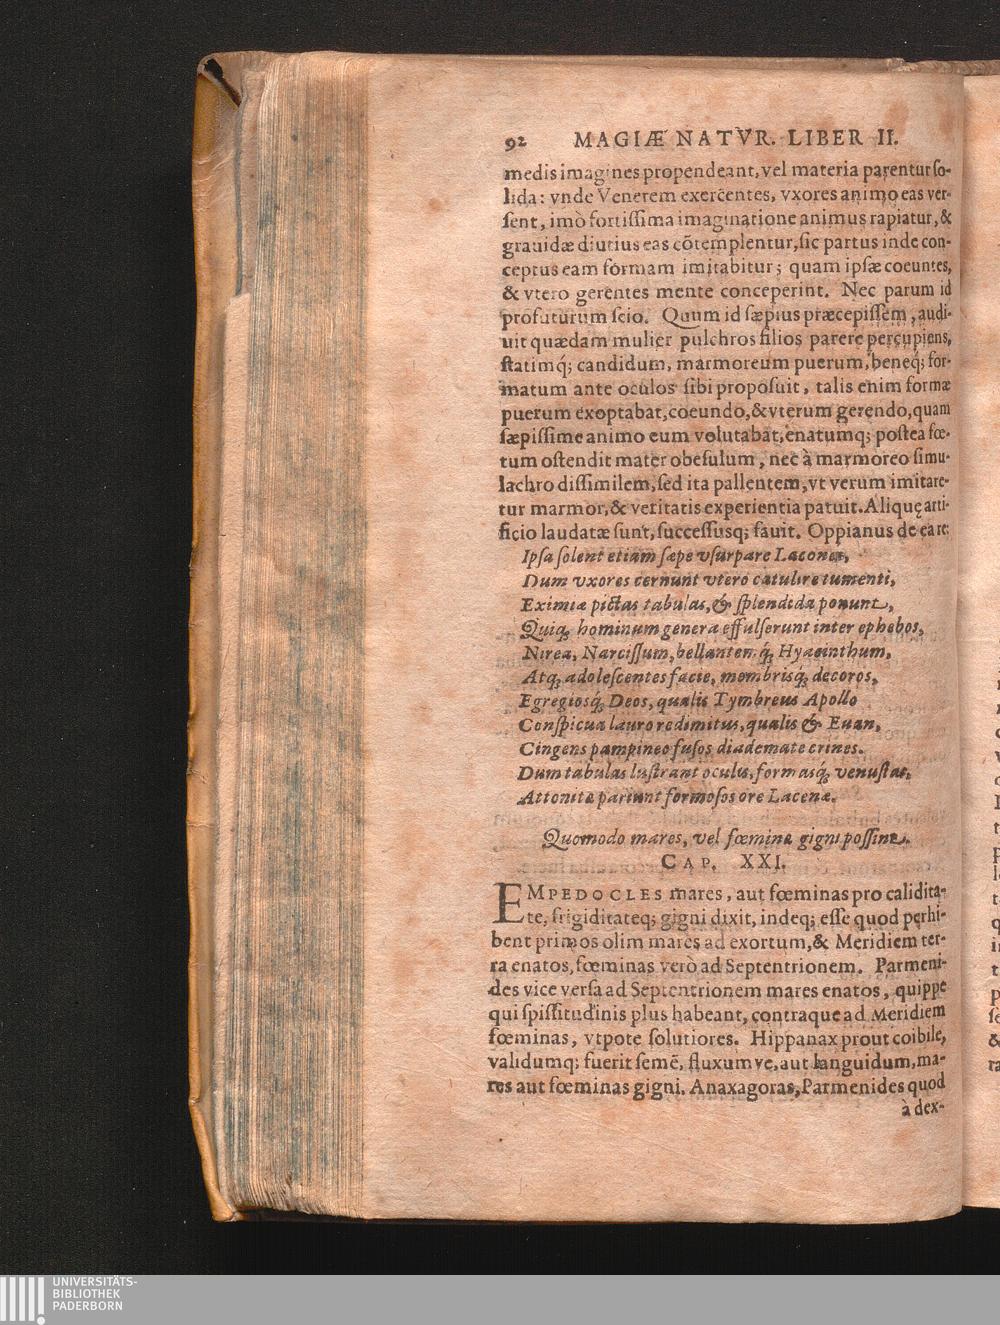 92 MAGIÆ NATVR. LIBER II.
medis imagines propendeant, vel materia parentur ſo-
lida: vnde Venerem exercentes, vxores animo eas ver-
ſent, imò fortiſſima imaginatione animus rapiatur, &
grauidæ diutius eas cõtemplentur, ſic partus inde con-
ceptus eam formam imitabitur; quam ipſæ coeuntes,
& vtero gerentes mente conceperint. Nec parum id
profuturum ſcio. Quum id ſæpius præcepiſſem, audi-
uit quædam mulier pulchros filios parere percupiens,
ſtatimq́; candidum, marmoreum puerum, beneq́; for-
matum ante oculos ſibi propoſuit, talis enim formæ
puerum exoptabat, coeundo, & vterum gerendo, quam
ſæpiſſime animo eum volutabat, enatumq; poſtea fœ-
tum oſtendit mater obeſulum, nec à marmoreo ſimu-
lachro diſſimilem, ſed ita pallentem, vt verum imitare-
tur marmor, & veritatis experientia patuit. Alique̜ arti-
ficio laudatæ ſunt, ſucceſſusq; fauit. Oppianus de ea re:
Ipſa ſolent etiam ſæpe vſurpare Lacones,
Dum vxores cernunt vtero catulire tumenti,
Eximiæ pictas tabulas, & ſplendida ponunt,
Quiq; hominum genera effulſerunt inter ephebos,
Nirea, Narciſſum, bellantem q́; Hyacinthum,
Atq; adoleſcentes facie, membrisq́; decoros,
Egregiosq́; Deos, qualis Tymbreus Apollo
Conſpicua lauro redimitus, qualis & Euan,
Cingens pampineo fuſos diademate crines.
Dum tabulas luſtrant oculis, formasq́; venuſtas,
Attonitæ pariunt formoſos ore Lacenæ.
Quomodo mares, vel fœminæ gigni poſſint.
CAP. XXI.
EMPEDOCLES mares, aut fœminas pro calidita-
te, frigiditateq; gigni dixit, indeq; eſſe quod perhi-
bent primos olim mares ad exortum, & Meridiem ter-
ra enatos, fœminas verò ad Septentrionem. Parmeni-
des vice verſa ad Septentrionem mares enatos, quippe
qui ſpiſſitudinis plus habeant, contraque ad Meridiem
fœminas, vtpote ſolutiores. Hippanax prout coibile,
validumq; fuerit ſemẽ, fluxumve, aut languidum, ma-
res aut fœminas gigni. Anaxagoras, Parmenides quod
à dex-
UNIVERSITÄTS-
BIBLIOTHEK
PADERBORN